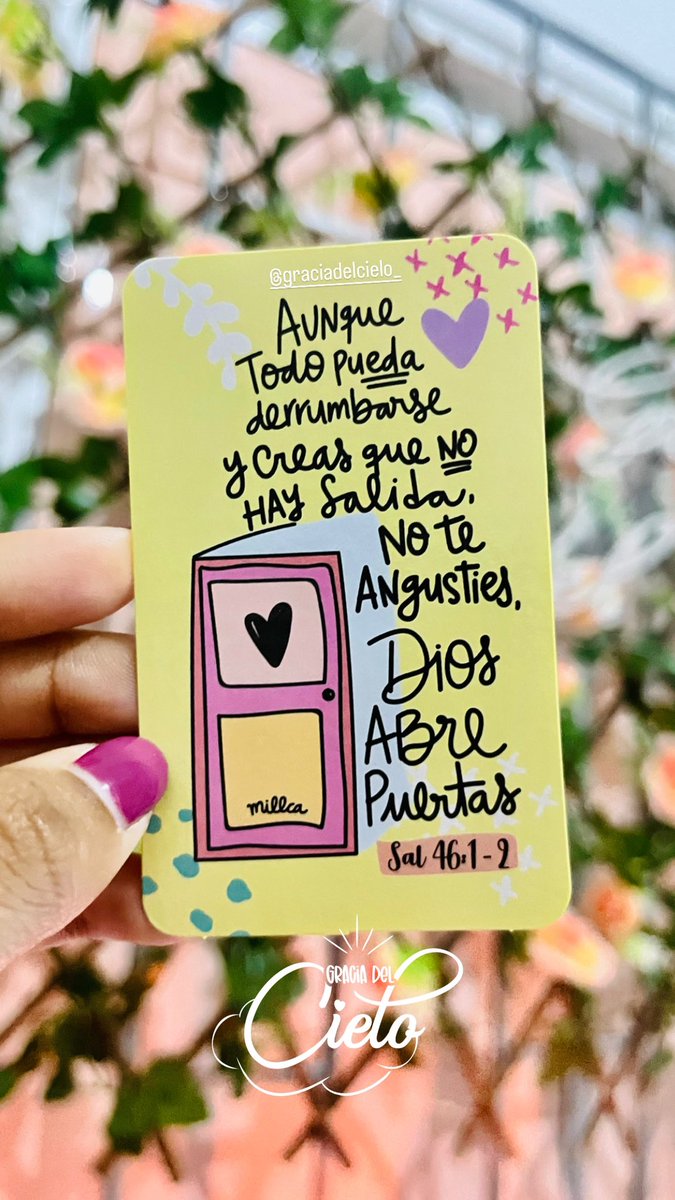 @graciadelcielo_
AUNque
TODO PUeda
derrumbarse
y creas que NO
HAY Salida,
NO te
ANgusties,
Dios
ABre
Puertas
millca
Sal 46:1-2
GRACIA DEL
Cielo